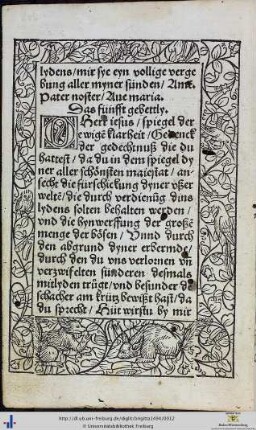 lydens / mir sye eyn vollige verge
bung aller myner sünden / Amẽ.
Pater noster / Aue maria.
Das fünfft gebettly.
O Herr iesus / spiegel der
ewigẽ klarheit / Gedenck
der gedechtnuß die du
hattest / da du in dem spiegel dy
ner aller schönsten maiestat / an-
sechẽ die fürschickung dyner vßer
weltẽ / die durch verdienũg dins
lydens solten behalten werden /
vnd die hynwerffung der großẽ
menge der bösen / Vnnd durch
den abgrund dyner erbermde /
durch den du vns verlornen vñ
verzwifelten sünderen desmals
mitlyden trůgt / vnd besunder dẽ
schacher am krütz bewißt hast / da
du sprecht / Hüt wirstu by mir
http://dl.ub.uni-freiburg.de/diglit/
© Universitätsbibliothek Freiburg